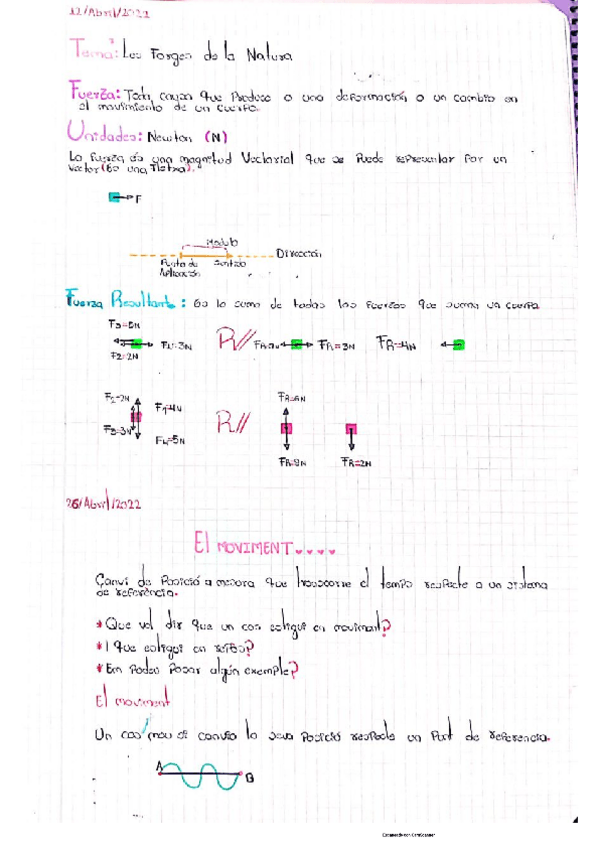 12/Abril/2022
Tema: Les Forçes de la Natura
Fuerza: Toda causa que produce o una deformación o un cambio en
el movimiento de un cuerpo.
Unidades: Newton (N)
La fuerza es una magnitud Vectorial que se puede representar por un
vector (Es una fletxa).
F
Modulo
Dirección
Punto de Sentido
Aplicación
Fuerza Resultante: Es la suma de todas las fuerzas que suma un cuerpo
F3=5N
F1=3N
F2=2N
R//
FR=3N
FR=4N
F2=2N
F1=4N
F3=3N
F4=5N
R//
FR=6N
FR=8N
FR=2N
26/Abril/2022
El MOVIMENT....
Canvi de Posició a mesura que transcorre el temps respecte a un sistema
de referència.
*Que vol dir que un cos estigui en moviment?
*I que estigui en repòs?
*Em podeu posar algún exemple?
El moviment
Un cos mou si canvia la seva Posició respecte un Punt de referencia.
A
B